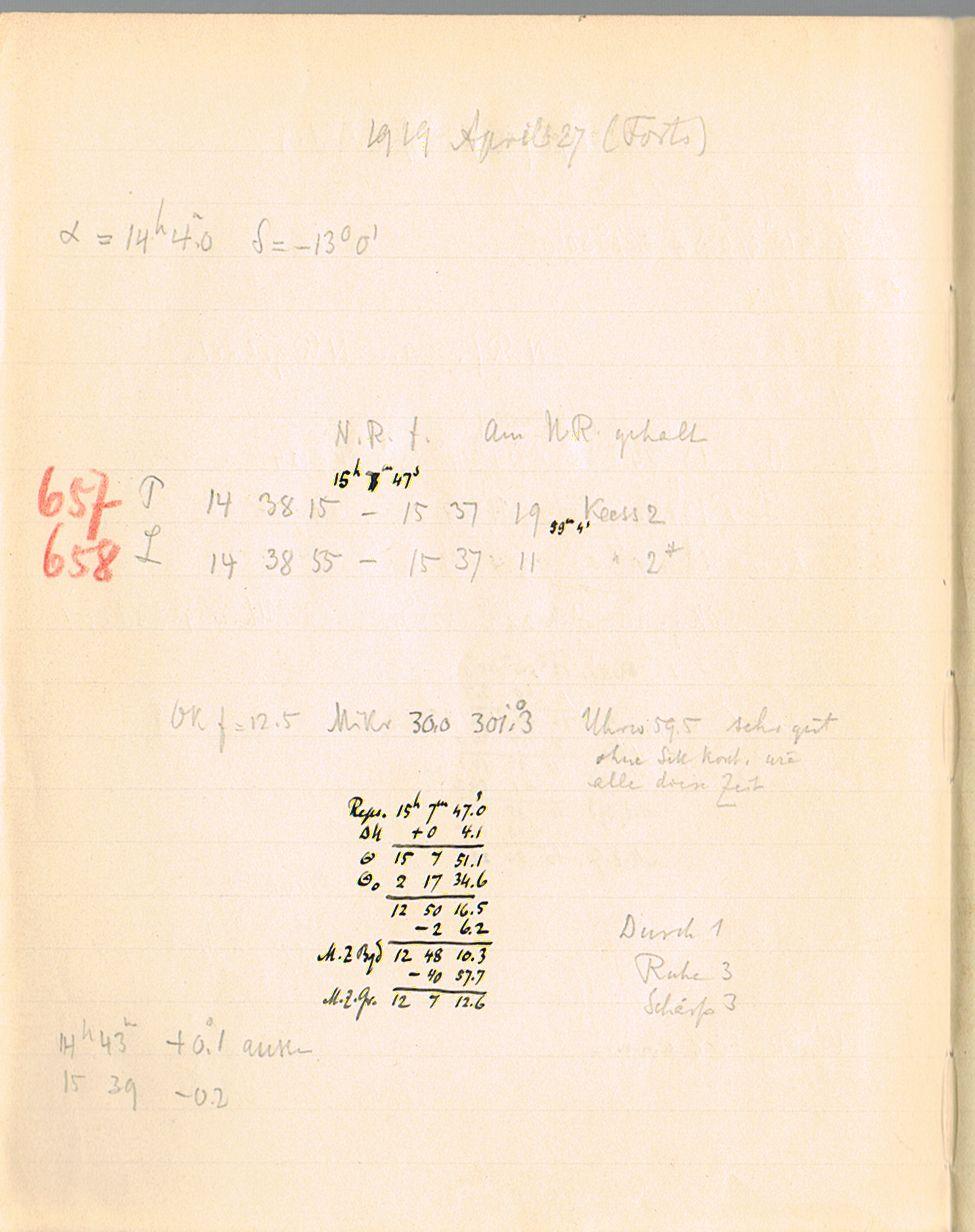 1919 April 27 (Forts)
α = 14ʰ 4ᵐ.0 δ = −13⁰ 0'
N.R. f. Am N.R. gehalt
15ʰ 7ᵐ 47ˢ
657 P 14 38 15 – 15 37 19 Keess 2
59ᵐ 4ˢ
658 L 14 38 55 – 15 37 11 " 2*
OK f = 12.5 Mikr 30.0 301⁰.3 Uhrw 59.5 sehr gut
ohne Sek Kont. wie
alle diese Zeit
Reps. 15ʰ 7ᵐ 47ˢ.0
ΔU +0 4.1
Θ 15 7 51.1
Θ₀ 2 17 34.6
12 50 16.5
−2 6.2
M.Z Bgd 12 48 10.3
−40 57.7
M.Z.Gr. 12 7 12.6
Durch 1
Ruhe 3
Schärfe 3
14ʰ 43ᵐ +0⁰.1 aussen
15 39 −0.2